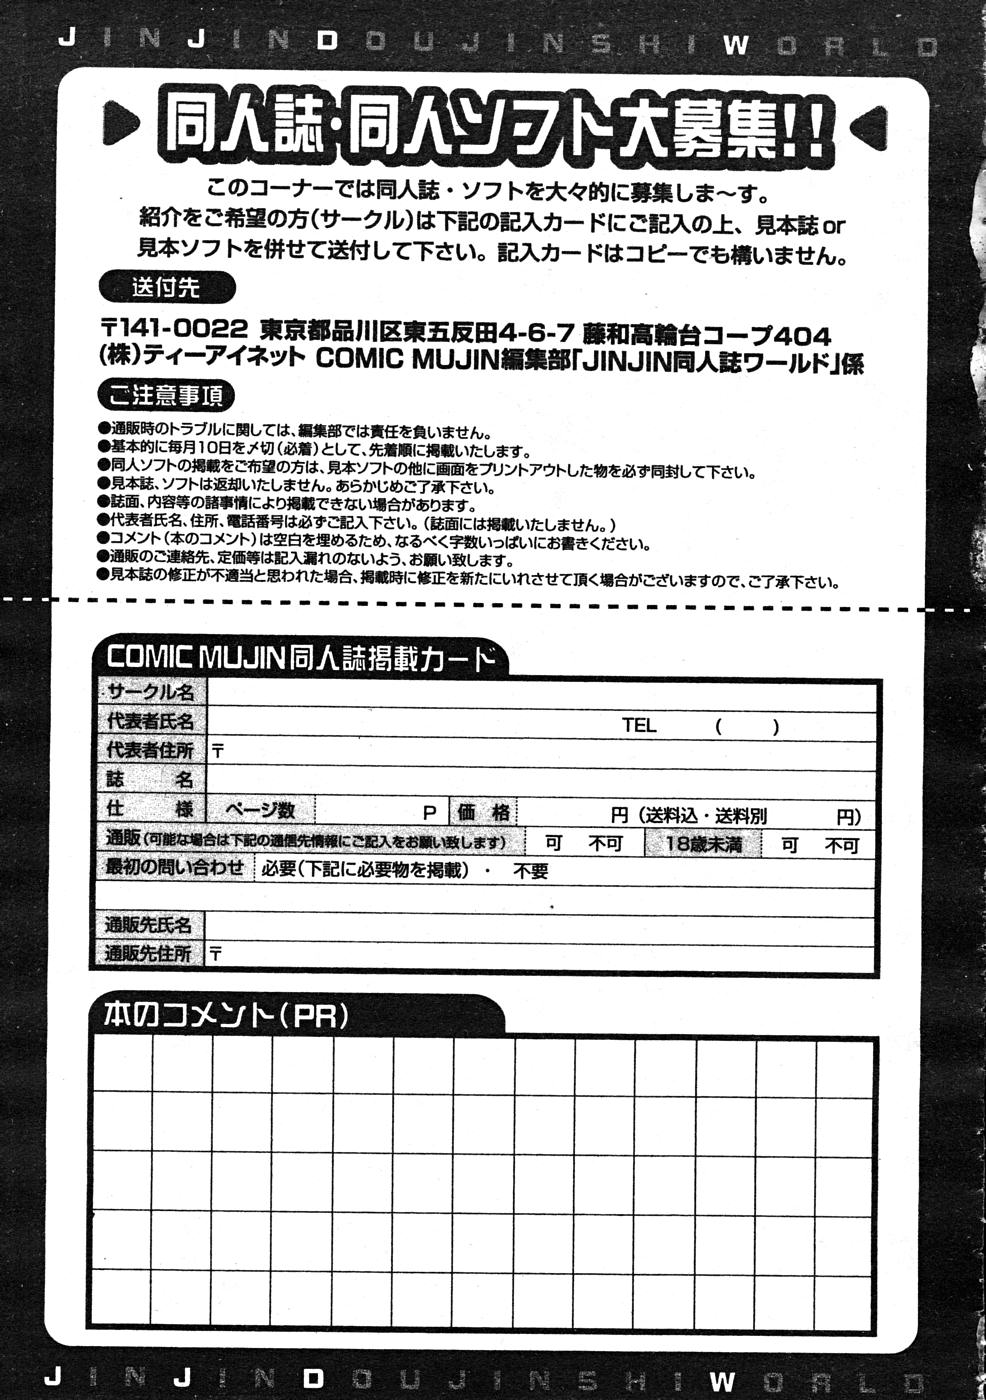 JINJIN DOUJINSHI WORLD
同人誌・同人ソフト大募集!!
このコーナーでは同人誌・ソフトを大々的に募集しま〜す。
紹介をご希望の方(サークル)は下記の記入カードにご記入の上、見本誌or
見本ソフトを併せて送付して下さい。記入カードはコピーでも構いません。
送付先
〒141-0022 東京都品川区東五反田4-6-7 藤和高輪台コープ404
(株)ティーアイネット COMIC MUJIN編集部「JINJIN同人誌ワールド」係
ご注意事項
●通販時のトラブルに関しては、編集部では責任を負いません。
●基本的に毎月10日を〆切(必着)として、先着順に掲載いたします。
●同人ソフトの掲載をご希望の方は、見本ソフトの他に画面をプリントアウトした物を必ず同封して下さい。
●見本誌、ソフトは返却いたしません。あらかじめご了承下さい。
●誌面、内容等の諸事情により掲載できない場合があります。
●代表者氏名、住所、電話番号は必ずご記入下さい。(誌面には掲載いたしません。)
●コメント(本のコメント)は空白を埋めるため、なるべく字数いっぱいにお書きください。
●通販のご連絡先、定価等は記入漏れのないよう、お願い致します。
●見本誌の修正が不適当と思われた場合、掲載時に修正を新たにいれさせて頂く場合がございますので、ご了承下さい。
COMIC MUJIN同人誌掲載カード
サークル名
代表者氏名 TEL ( )
代表者住所 〒
誌 名
仕 様 ページ数 P 価 格 円(送料込・送料別 円)
通販(可能な場合は下記の通信先情報にご記入をお願い致します) 可 不可 18歳未満 可 不可
最初の問い合わせ 必要(下記に必要物を掲載) ・ 不要
通販先氏名
通販先住所 〒
本のコメント(PR)
JINJIN DOUJINSHI WORLD